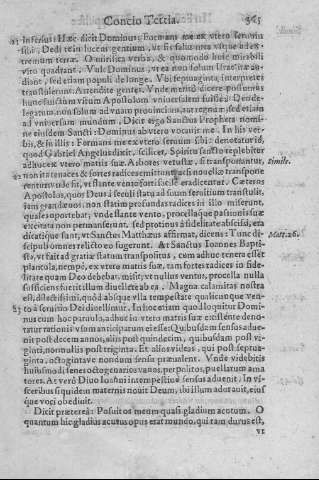 Concio Tertia. 365
Hæc dicit Dominus; Formans me ex vtero
Dedi te in lucem gentium, vt sis salus mea vsque ad ex-
tremum terræ. O mirifica verba, & quomodo huic mirabili
viro quadrant. Vult Dominus, vt ea non solum
diant, sed etiam populi de longe. Vbi septuaginta, interpretes
transtulerunt: Attendite gentes. Vnde merito dicere possumus
hunc sanctum virum Apostolum vniuersalem fuisse:
legatum, non solum ad vnam prouinciam, aut regnum, sed etiam
ad vniuersum mundum. Dicit ergo Sanctus Propheta nomi-
ne eiusdem Sancti: Dominus ab vtero vocauit me. In his ver-
bis, & in illis: Formans me ex vtero seruum sibi: denotatur id,
quod Gabriel Angelus dixit, scilicet, Spiritu sancto replebitur
adhuc ex vtero matris suæ. Arbores vetustæ, si transportantur, Simile.
non ita tenaces & fortes radices mittunt, si nouellæ transpone
rentur: vnde fit, vt stante vento fortiter eradicentur. Cæteros
Apostolos, quos Deus à seculi statu ad suum seruitium transtulit,
iam grandæuos, non statim profundas radices in illo miserunt,
quales oportebat, vnde stante vento, procellaque passionis suæ
excitata non permanserunt, sed protinus à fidelitate abscissi, era
dicatique sunt, vt Sanctus Matthæus affirmat, dicens: Tunc di- Matt. 26.
scipuli omnes relicto eo fugerunt. At Sanctus Ioannes Bapti-
sta, vt fuit ad gratiæ statum transpositus, cum adhuc tenera esset
plantula, nempè, ex vtero matris suæ, tam fortes radices in fide-
litate quam Deo debebat, misit, vt nullus ventus, procella nulla
sufficiens fuerit illum diuellere ab ea. Magna calamitas nostra
est, dilectissimi, quod absque vlla tempestate qualicunque ven-
to à seruitio Dei diuellimur. In hoc etiam quod loquitur Domi-
nus cum hoc paruulo, adhuc in vtero matris suæ existente deno-
tatur rationis vsum anticipatum ei esse: Quibusdam sensus adue-
nit post decem annos, aliis post quindecim, quibusdam post vi-
ginti, nonnullis post triginta. Et alios videas, qui post septua-
ginta, octogintave nondum sensu præualent. Vnde videbitis
huiusmodi senes octogenarios vanos, perpolitos, puellarum ama
tores. At verò Diuo Ioanni intempestiuè sensus aduenit. In vi-
sceribus siquidem maternis nouit Deum, ibi illum adorauit, eius
que voci obediuit.
Dicit præterea: Posuit os meum quasi gladium acutum. O
quantum hic gladius acutus opus erat mundo, qui tam durus est,
vt